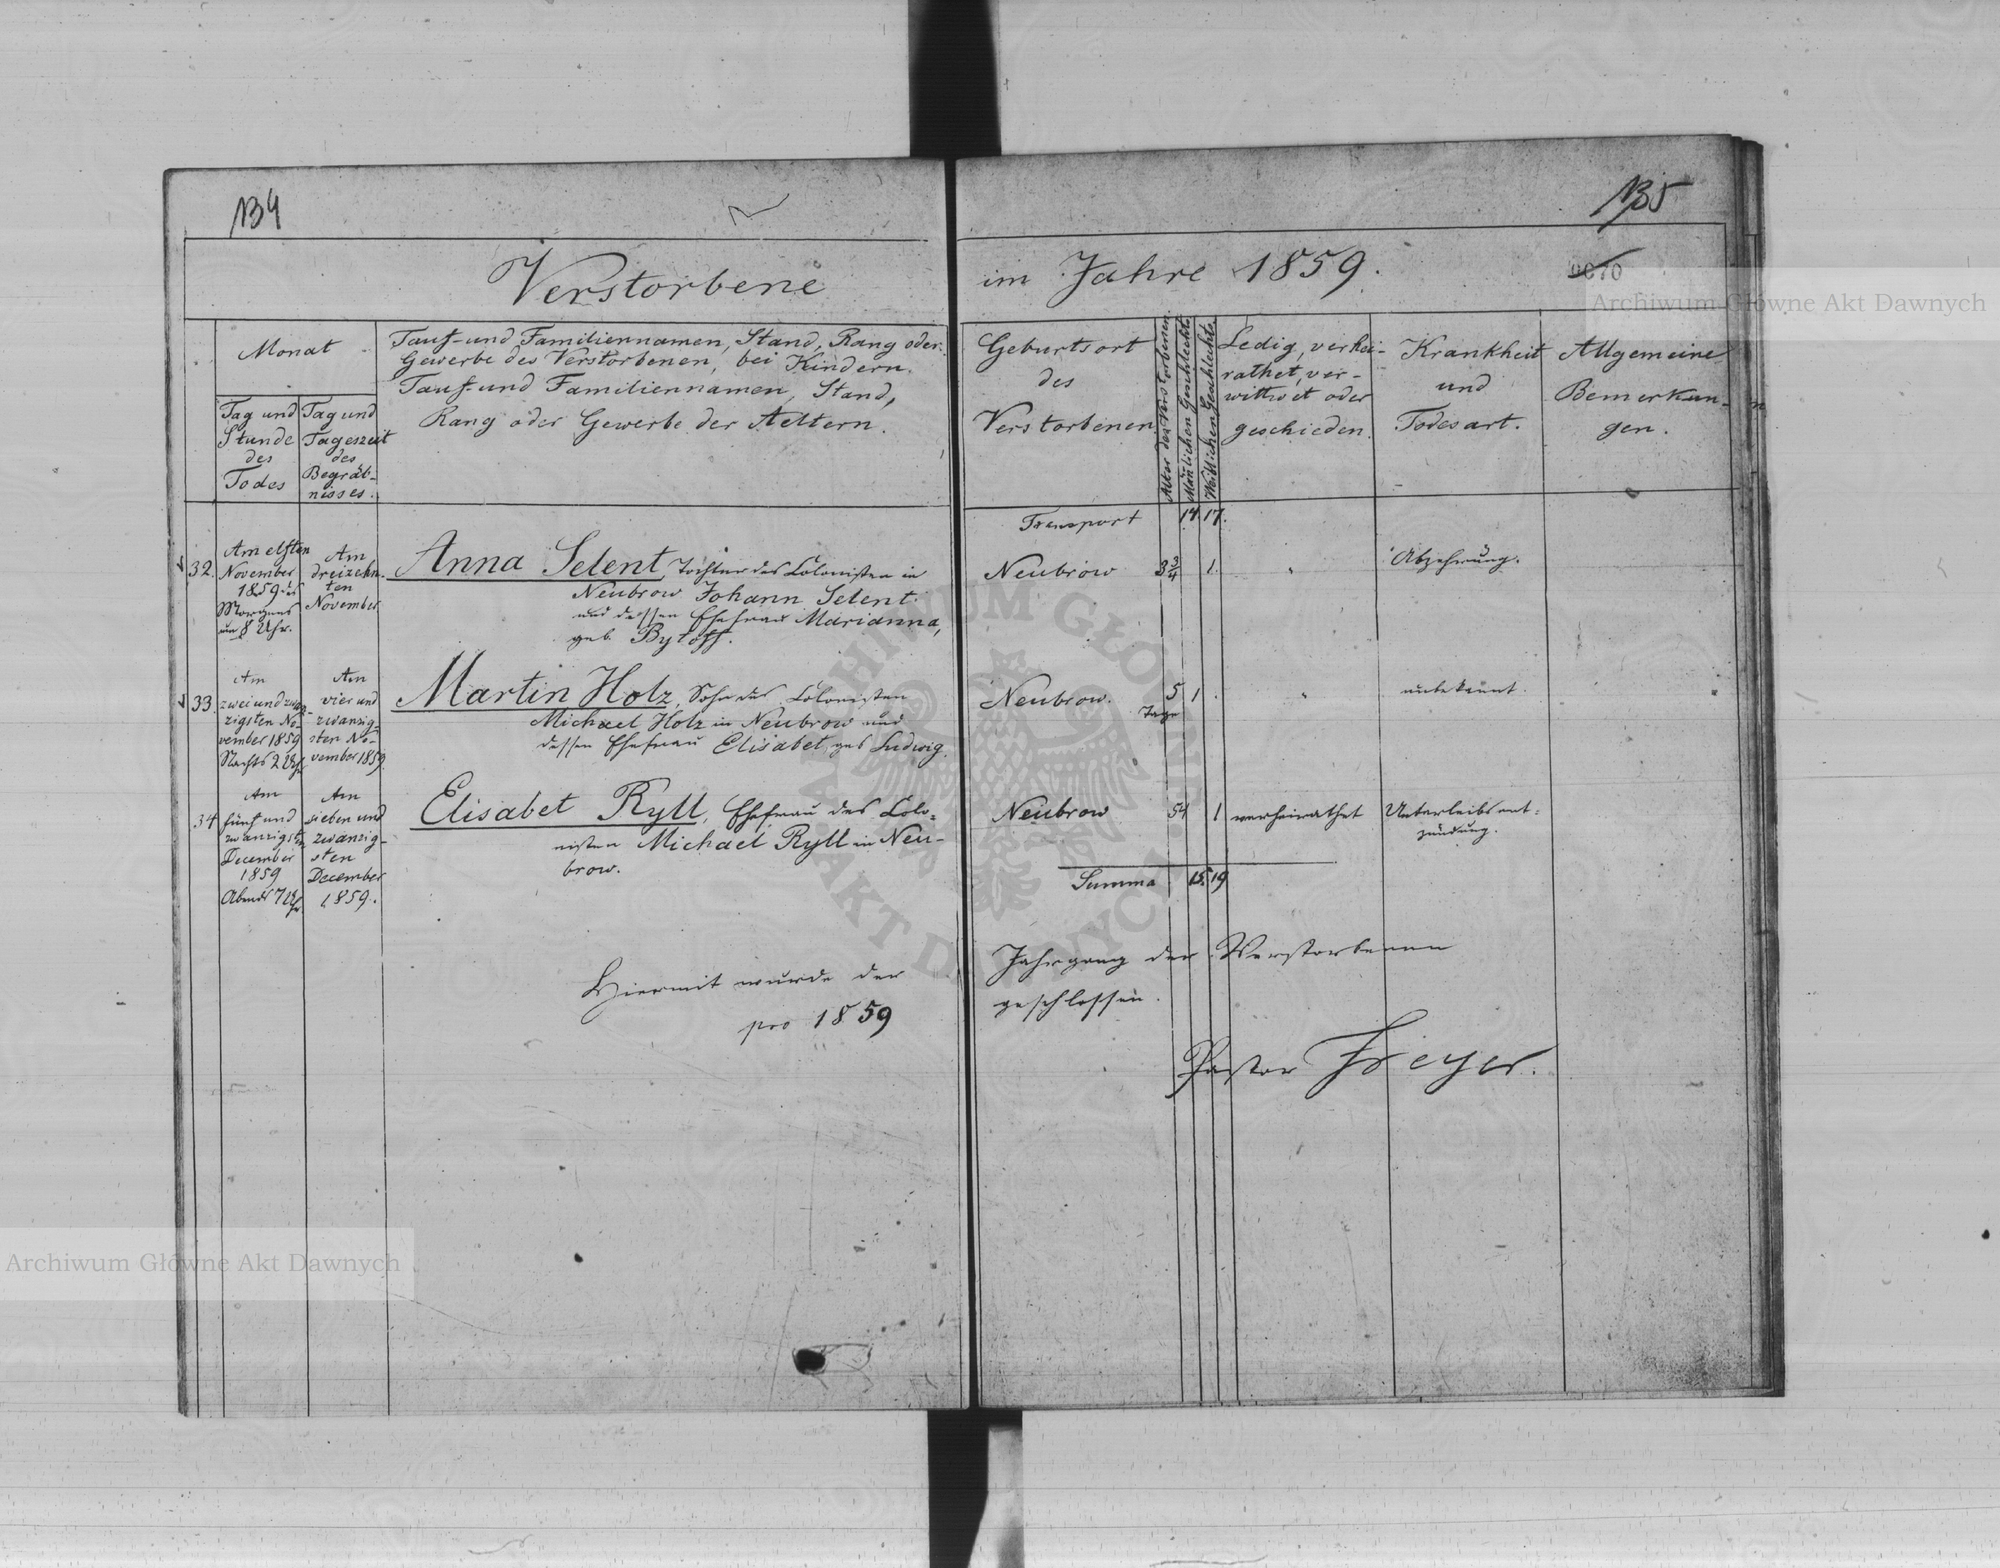 134
135
Verstorbene
im Jahre 1859.
0070
Archiwum Główne Akt Dawnych
Monat
Tag und
Stunde
des
Todes
Tag und
Tageszeit
des
Begräb-
nisses.
Tauf- und Familiennamen, Stand, Rang oder
Gewerbe des Verstorbenen, bei Kindern
Tauf- und Familiennamen, Stand,
Rang oder Gewerbe der Aeltern.
Geburtsort
des
Verstorbenen
Alter des Verstorbenen.
Mänlichen Geschlechts
Weiblichen Geschlechts.
Ledig, verhei-
rathet, ver-
wittwet oder
geschieden.
Krankheit
und
Todesart.
Allgemeine
Bemerkun-
gen.
Transport 14. 17.
32.
Am elften
November
1859
Morgens
um 8 Uhr.
Am
dreizehn-
ten
November
Anna Selent, Tochter des Colonisten in
Neubrow Johann Selent.
und dessen Ehefrau Marianna,
geb. Bytoff.
Neubrow 3 3/4 1. " Abzehrung.
33.
Am
zwei und zwan-
zigsten No-
vember 1859
Nachts 2 Uhr
Am
vier und
zwanzig-
sten No-
vember 1859.
Martin Holz, Sohn des Colonisten
Michael Holz in Neubrow und
dessen Ehefrau Elisabet, geb Ludwig.
Neubrow. 5 1 . " unbekannt.
Tage
34
Am
fünf und
zwanzigsten
December
1859
Abends 7 Uhr
Am
sieben und
zwanzig-
sten
December
1859.
Elisabet Ryll, Ehefrau des Colo-
nisten Michael Ryll in Neu-
brow.
Neubrow 54 1 verheirathet Unterleibsent-
zündung.
Summa 15. 19
Hiermit wurde der Jahrgang der Verstorbenen
pro 1859 geschlossen.
Pastor Freyer.
Archiwum Główne Akt Dawnych
ARCHIWUM GŁÓWNE AKT DAWNYCH